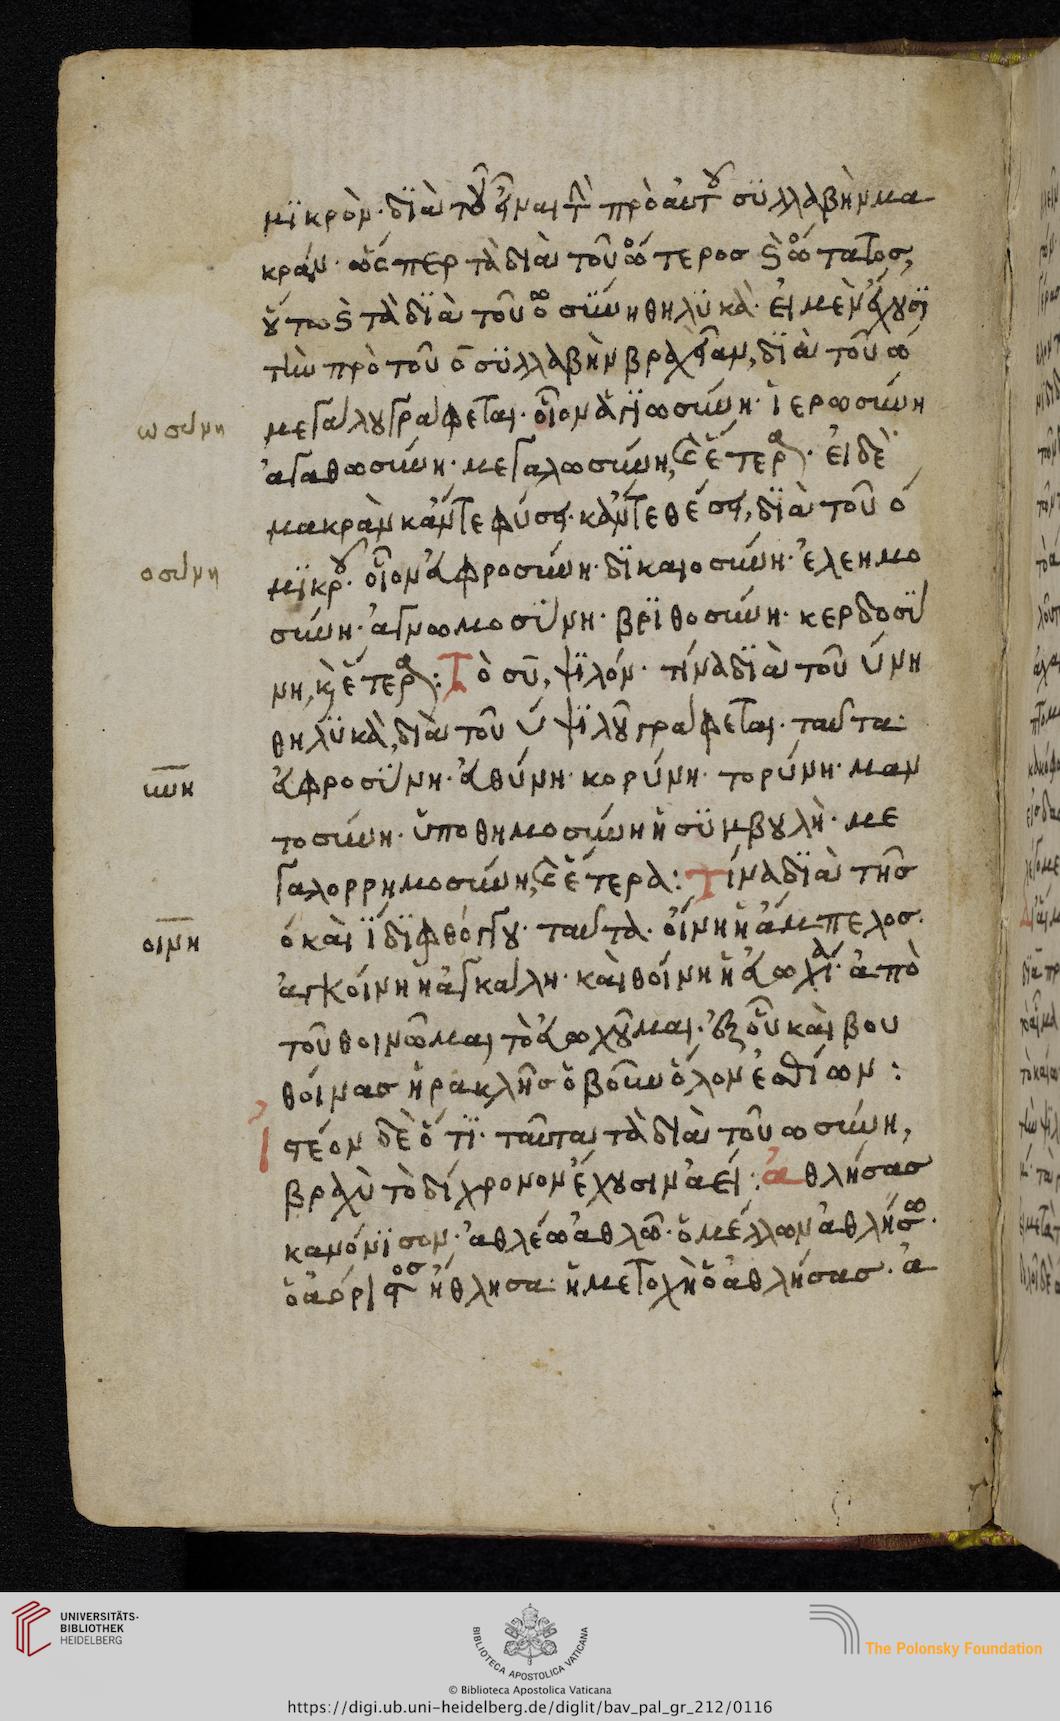 μϊκρὸν· δϊὰ τοῦ εἶναι τὴν πρὸ αὐτοῦ σϋλλαβὴν μα
κράν· ὥσπερ τὰ διὰ τοῦ ότερος καὶ ότατος,
οὕτω καὶ τὰ δϊὰ τοῦ οσϋνη θηλϋκὰ· εἰ μὲν ἔχουσϊ
τὴν πρὸ τοῦ ο σϋλλαβὴν βραχεῖαν, δϊὰ τοῦ ω
ωσύνη
μεγάλου γράφεται· οἷον ἁγϊωσύνη· ἱερωσύνη
ἀγαθωσύνη· μεγαλωσύνη, καὶ ἕτερα· εἰ δὲ
μακρὰν κἀν τε φύσει· κἀν τε θέσει, δϊὰ τοῦ ὀ
οσύνη
μϊκροῦ· οἷον ἀφροσύνη· δϊκαιοσύνη· ἐλεημο
σύνη· ἀγνωμοσϋνη· βρϊθοσύνη· κερδοσϋ
νη, καὶ ἕτερα: Τὸ συ, ψϊλόν· τίνα δϊὰ τοῦ ύνη
θηλϋκὰ, διὰ τοῦ υ ψϊλοῦ γράφεται· ταῦτα·
υνη
ἀφροσϋνη· ἀθύνη· κορύνη· τορύνη· μαν
τοσύνη· ὑποθημοσύνη ἡ σϋμβουλὴ· με
γαλορρημοσύνη, καὶ ἕτερα: Τίνα δϊὰ τῆς
οινη
ό καὶ ϊ δϊφθόγγου· ταῦτα· οἴνη ἡ ἄμπελος·
ἀγκοίνη ἡ ἀγκάλη· καὶ θοίνη ἡ εὐωχία· ἀπὸ
τοῦ θοινῶμαι τὸ εὐωχοῦμαι· ἐξ οὗ καὶ βου
θοίνας ἡρακλῆς ὁ βοῦν ὅλον ἐσθίων:
Ἰστέον δὲ ὅτϊ· ταῦτα τὰ διὰ τοῦ ωσύνη,
βραχὺ τὸ δίχρονον ἔχουσιν ἀεί: ἀθλήσας
κανόνϊσον· ἀθλέω ἀθλῶ· ὁ μέλλων ἀθλήσω·
ὁ ἀόριστος ἤθλησα· ἡ μετοχὴ ὁ ἀθλήσας· ἀ
UNIVERSITÄTS-
BIBLIOTHEK
HEIDELBERG
BIBLIOTECA APOSTOLICA VATICANA
The Polonsky Foundation
© Biblioteca Apostolica Vaticana
https://digi.ub.uni-heidelberg.de/diglit/bav_pal_gr_212/0116